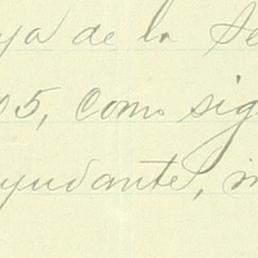 ya de la Se
05, como sig
yudante, m